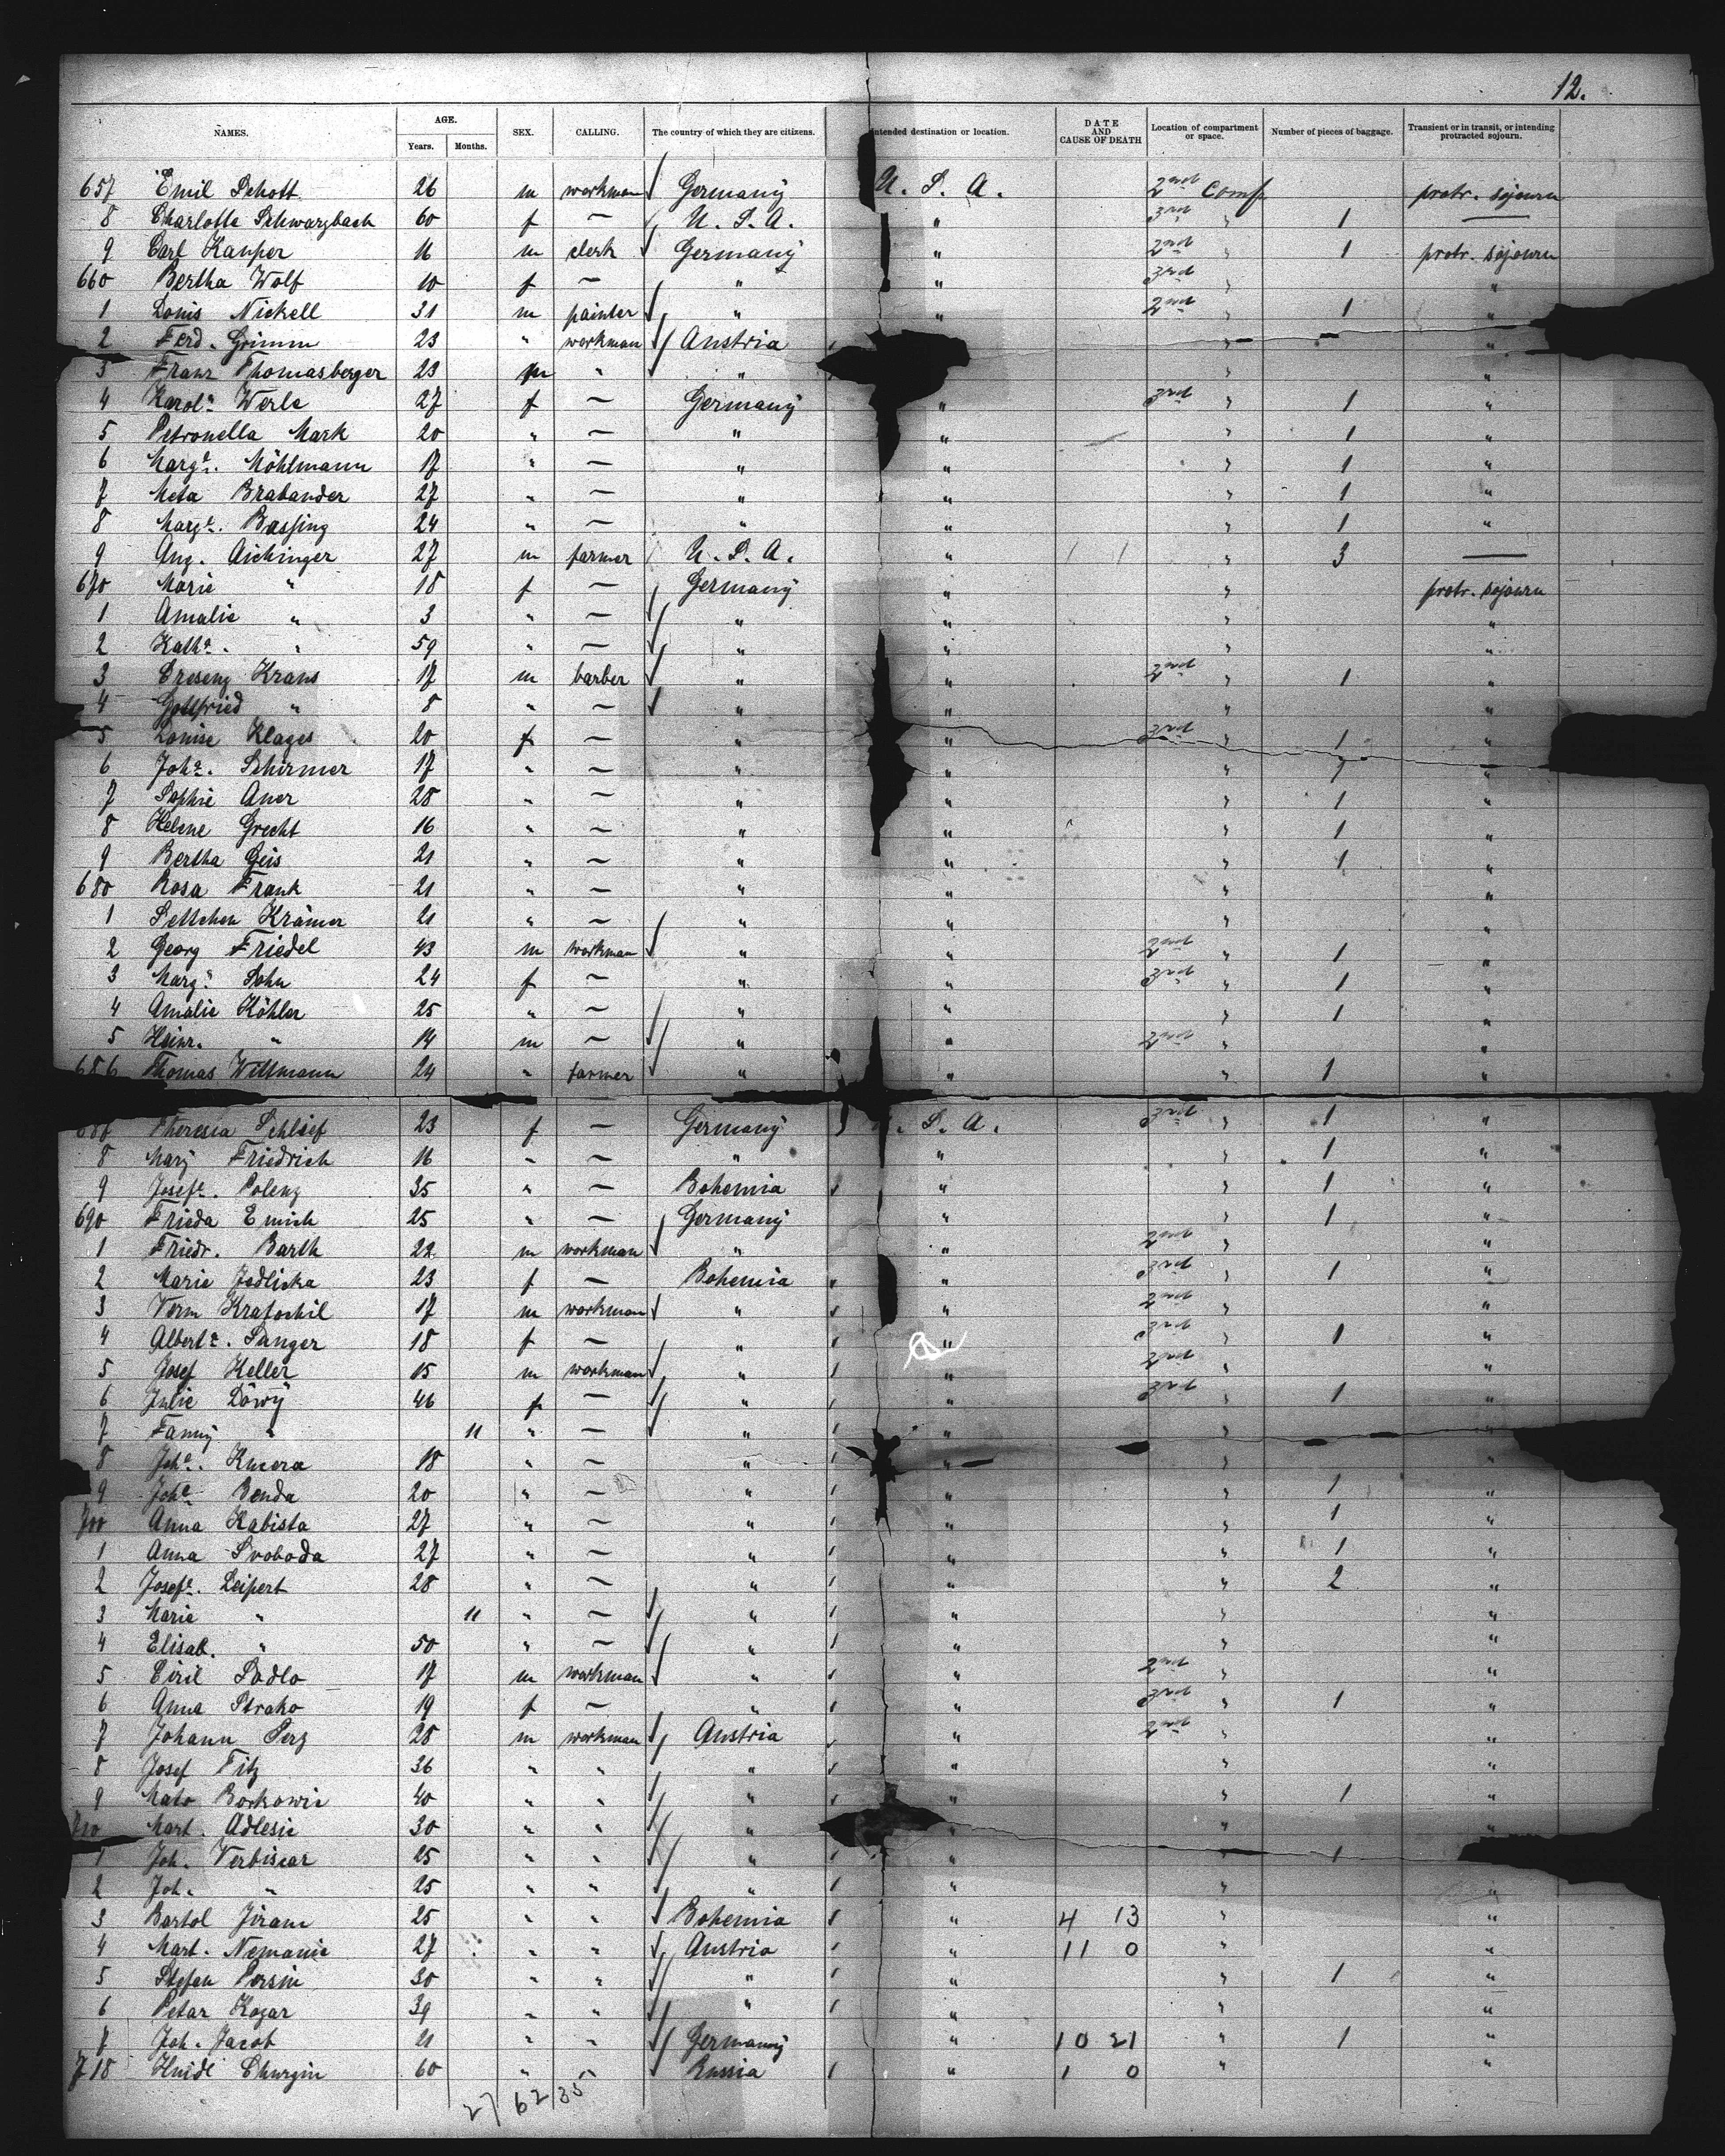 12.
NAMES. AGE. Years. Months. SEX. CALLING. The country of which they are citizens. Intended destination or location. DATE AND CAUSE OF DEATH Location of compartment or space. Number of pieces of baggage. Transient or in transit, or intending protracted sojourn.
657 Emil Schott 26 m workman Germany U. S. A. 2nd Comp protr. sojourn
8 Charlotte Schwarzbach 60 f — U. S. A. " 3rd " 1 —
9 Carl Kamper 16 m clerk Germany " 2nd " 1 protr. sojourn
660 Bertha Wolf 10 f — " " 3rd " "
1 Louis Nickell 31 m painter " " 2nd " 1 "
2 Ferd. Grimm 23 " workman Austria " "
3 Franz Thomasberger 23 m " " " "
4 Karola Werle 27 f — Germany " 3rd " 1 "
5 Petronella Mark 20 " — " " " 1 "
6 Marge. Möhlmann 17 " — " " " 1 "
7 Meta Brabander 27 " — " " " 1 "
8 Marge. Bassing 24 " — " " " 1 "
9 Aug. Aichinger 27 m farmer U. S. A. " " 3 —
670 Marie " 18 f — Germany " " protr. sojourn
1 Amalie " 3 " — " " " "
2 Katha. " 59 " — " " " "
3 Kraus 17 m barber " " 2nd " 1 "
4 Gottfried " 8 " — " " " "
5 Louise Klages 20 f — " " 3rd " 1 "
6 Joha. Schirmer 17 " — " " " 1 "
7 Sophie Auer 28 " — " " " 1 "
8 Helene Grecht 16 " — " " " 1 "
9 Bertha Geis 21 " — " " " 1 "
680 Rosa Frank 21 " — " " " "
1 Settchen Krämer 21 " — " " " "
2 Georg Friedel 43 m workman " " 2nd " 1 "
3 Marga Sohn 24 f — " " 3rd " 1 "
4 Amalie Köhler 25 " — " " " 1 "
5 Heinr. " 14 m — " " 2nd "
686 Thomas Wittmann 24 " farmer " " " 1 "
Theresia Schleif 23 f — Germany . S. A. 3rd " 1 "
8 Mary Friedrich 16 " — " " " 1 "
9 Josefa. Polenz 35 " — Bohemia " " 1 "
690 Frieda Emich 25 " — Germany " " 1 "
1 Friedr. Barth 22 m workman " " 2nd " "
2 Marie Jedlicka 23 f — Bohemia " 3rd " 1 "
3 Kratochil 17 m workman " " 2nd " "
4 Alberte. Sanger 18 f — " " 3rd " 1 "
5 Josef Keller 15 m workman " " 2nd " "
6 Julie Löwy 46 f — " " 3rd " 1 "
7 Fanny " 11 " — " " " "
8 Joha. Kucera 18 " — " " " "
9 Joha Benda 20 " — " " " 1 "
700 Anna Kabista 27 " — " " " 1 "
1 Anna Svoboda 27 " — " " " 1 "
2 Josefa. Leipert 28 " — " " " 2 "
3 Marie " 11 " — " " " "
4 Elisab. " 50 " — " " " "
5 Ciril Sadlo 17 m workman " " 2nd " "
6 Anna Strako 19 f — " " 3rd " 1 "
7 Johann Perz 28 m workman Austria " 2nd " "
8 Josef Fitz 36 " " " " " "
9 Mato Borkowic 40 " " " " " 1 "
710 Mart. Adlesic 30 " " " " " "
1 Joh. Verbiscar 25 " " " " " 1
2 Joh. " 25 " " " " " "
3 Bartol Jiram 25 " " Bohemia " 4 13 " "
4 Mart. Nemanic 27 " " Austria " 11 0 " "
5 Stefan Persin 30 " " " " " 1 "
6 Petar Kozar 39 " " " " " "
7 Joh. Jacob 21 " " Germany " 10 21 " 1 "
718 Churgin 60 " " Russia " 1 0 " "
27 62/35